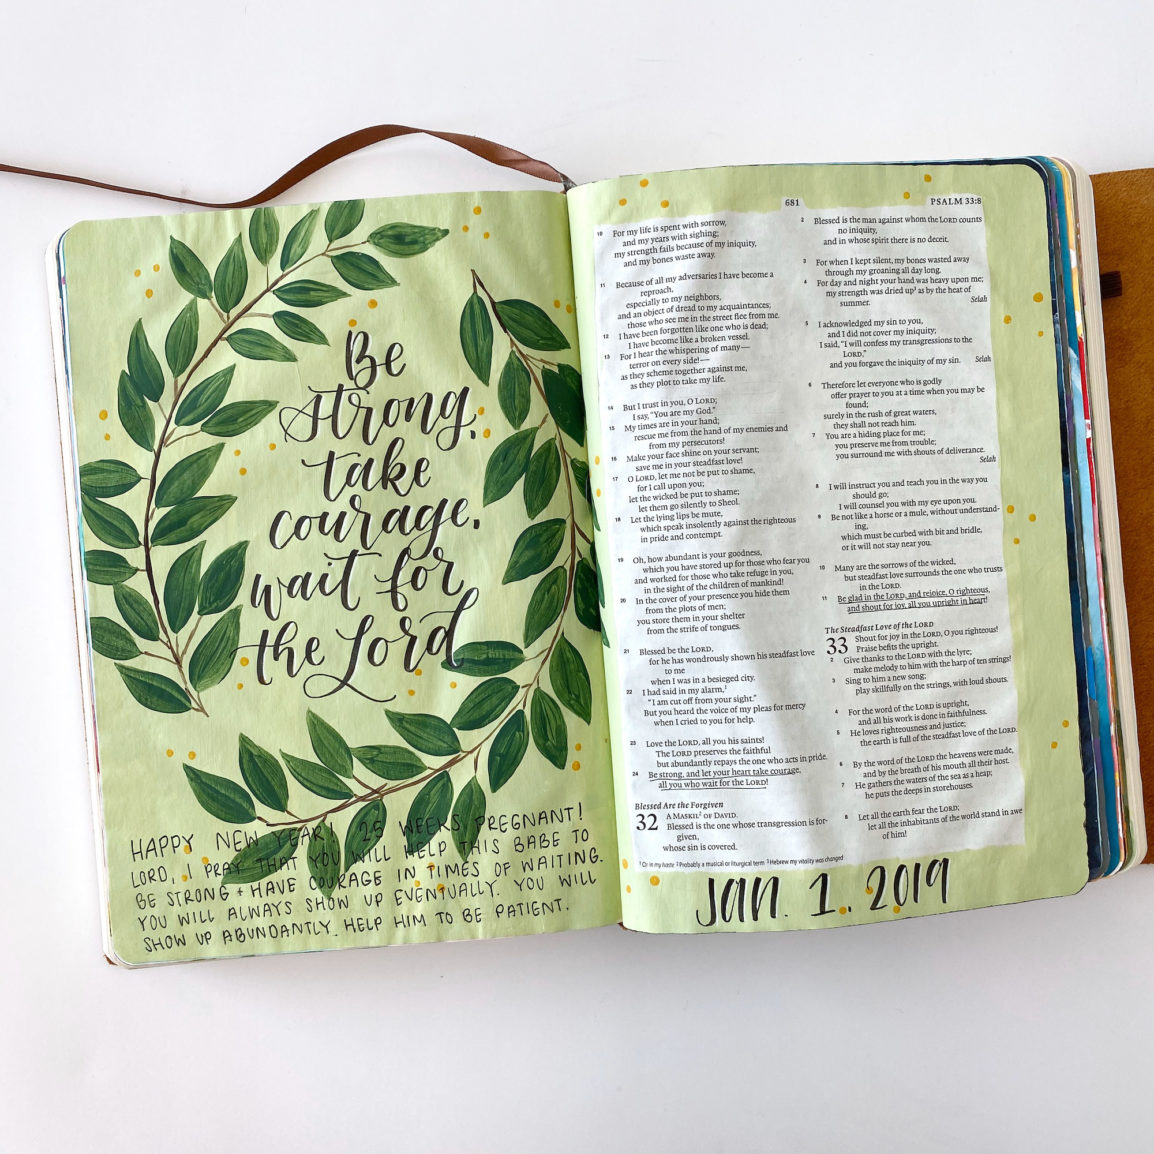 Be
strong,
take
courage,
wait for
the Lord
HAPPY NEW YEAR! 25 WEEKS PREGNANT!
LORD, I PRAY THAT YOU WILL HELP THIS BABE TO
BE STRONG + HAVE COURAGE IN TIMES OF WAITING.
YOU WILL ALWAYS SHOW UP EVENTUALLY. YOU WILL
SHOW UP ABUNDANTLY. HELP HIM TO BE PATIENT.
681
PSALM 33:8
10 For my life is spent with sorrow,
and my years with sighing;
my strength fails because of my iniquity,
and my bones waste away.
11 Because of all my adversaries I have become a
reproach,
especially to my neighbors,
and an object of dread to my acquaintances;
those who see me in the street flee from me.
12 I have been forgotten like one who is dead;
I have become like a broken vessel.
13 For I hear the whispering of many—
terror on every side!—
as they scheme together against me,
as they plot to take my life.
14 But I trust in you, O LORD;
I say, "You are my God."
15 My times are in your hand;
rescue me from the hand of my enemies and
from my persecutors!
16 Make your face shine on your servant;
save me in your steadfast love!
17 O LORD, let me not be put to shame,
for I call upon you;
let the wicked be put to shame;
let them go silently to Sheol.
18 Let the lying lips be mute,
which speak insolently against the righteous
in pride and contempt.
19 Oh, how abundant is your goodness,
which you have stored up for those who fear you
and worked for those who take refuge in you,
in the sight of the children of mankind!
20 In the cover of your presence you hide them
from the plots of men;
you store them in your shelter
from the strife of tongues.
21 Blessed be the LORD,
for he has wondrously shown his steadfast love
to me
when I was in a besieged city.
22 I had said in my alarm,1
"I am cut off from your sight."
But you heard the voice of my pleas for mercy
when I cried to you for help.
23 Love the LORD, all you his saints!
The LORD preserves the faithful
but abundantly repays the one who acts in pride.
24 Be strong, and let your heart take courage,
all you who wait for the LORD!
Blessed Are the Forgiven
32 A MASKIL2 OF DAVID.
Blessed is the one whose transgression is for-
given,
whose sin is covered.
2 Blessed is the man against whom the LORD counts
no iniquity,
and in whose spirit there is no deceit.
3 For when I kept silent, my bones wasted away
through my groaning all day long.
4 For day and night your hand was heavy upon me;
my strength was dried up3 as by the heat of
summer. Selah
5 I acknowledged my sin to you,
and I did not cover my iniquity;
I said, "I will confess my transgressions to the
LORD,"
and you forgave the iniquity of my sin. Selah
6 Therefore let everyone who is godly
offer prayer to you at a time when you may be
found;
surely in the rush of great waters,
they shall not reach him.
7 You are a hiding place for me;
you preserve me from trouble;
you surround me with shouts of deliverance.
Selah
8 I will instruct you and teach you in the way you
should go;
I will counsel you with my eye upon you.
9 Be not like a horse or a mule, without understand-
ing,
which must be curbed with bit and bridle,
or it will not stay near you.
10 Many are the sorrows of the wicked,
but steadfast love surrounds the one who trusts
in the LORD.
11 Be glad in the LORD, and rejoice, O righteous,
and shout for joy, all you upright in heart!
The Steadfast Love of the LORD
33 Shout for joy in the LORD, O you righteous!
Praise befits the upright.
2 Give thanks to the LORD with the lyre;
make melody to him with the harp of ten strings!
3 Sing to him a new song;
play skillfully on the strings, with loud shouts.
4 For the word of the LORD is upright,
and all his work is done in faithfulness.
5 He loves righteousness and justice;
the earth is full of the steadfast love of the LORD.
6 By the word of the LORD the heavens were made,
and by the breath of his mouth all their host.
7 He gathers the waters of the sea as a heap;
he puts the deeps in storehouses.
8 Let all the earth fear the LORD;
let all the inhabitants of the world stand in awe
of him!
1 Or in my haste 2 Probably a musical or liturgical term 3 Hebrew my vitality was changed
Jan. 1, 2019